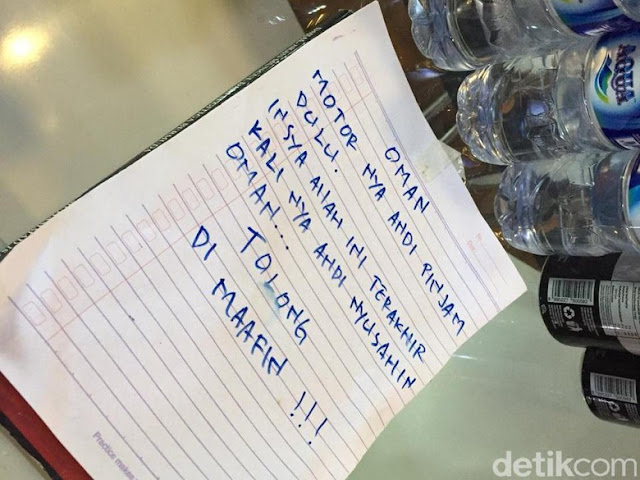 OMAN
MOTOR NYA ANDI PINJAM
DULU.
INSYA ALLAH INI TERAKHIR
KALI NYA ANDI NYUSAHIN
OMAN...
TOLONG
DI MAAFIN !!!
Practice makes
AQUA
detikcom